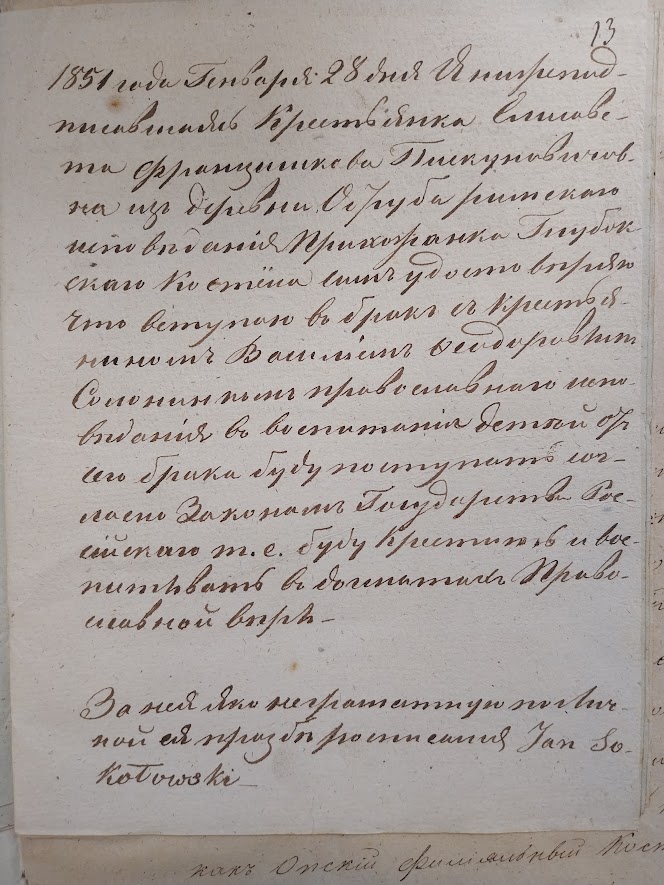 13
1851 года Генваря 28 дня Я нижепод-
писавшаясь Крестьянка Елисаве-
та Францишкова Пискуновичов-
на изъ деревни Обруба римскаго
исповѣданія Прихожанка Глубок
скаго Костёла симъ удостовѣряю
что вступаю въ бракъ съ крестья-
ниномъ Василіемъ Ѳеодоровымъ
православнаго испо-
вѣданія въ воспитаніи детей отъ
сего брака буду поступать сог-
ласно Законамъ Государства Рос-
сійскаго т. е. буду крестить и вос-
питывать въ догматахъ Право-
славной вѣрѣ —
За нея яко неграматную по лич-
ной ея прозбѣ росписался Jan So-
kołowski —
какъ Опскій филіальный Кост